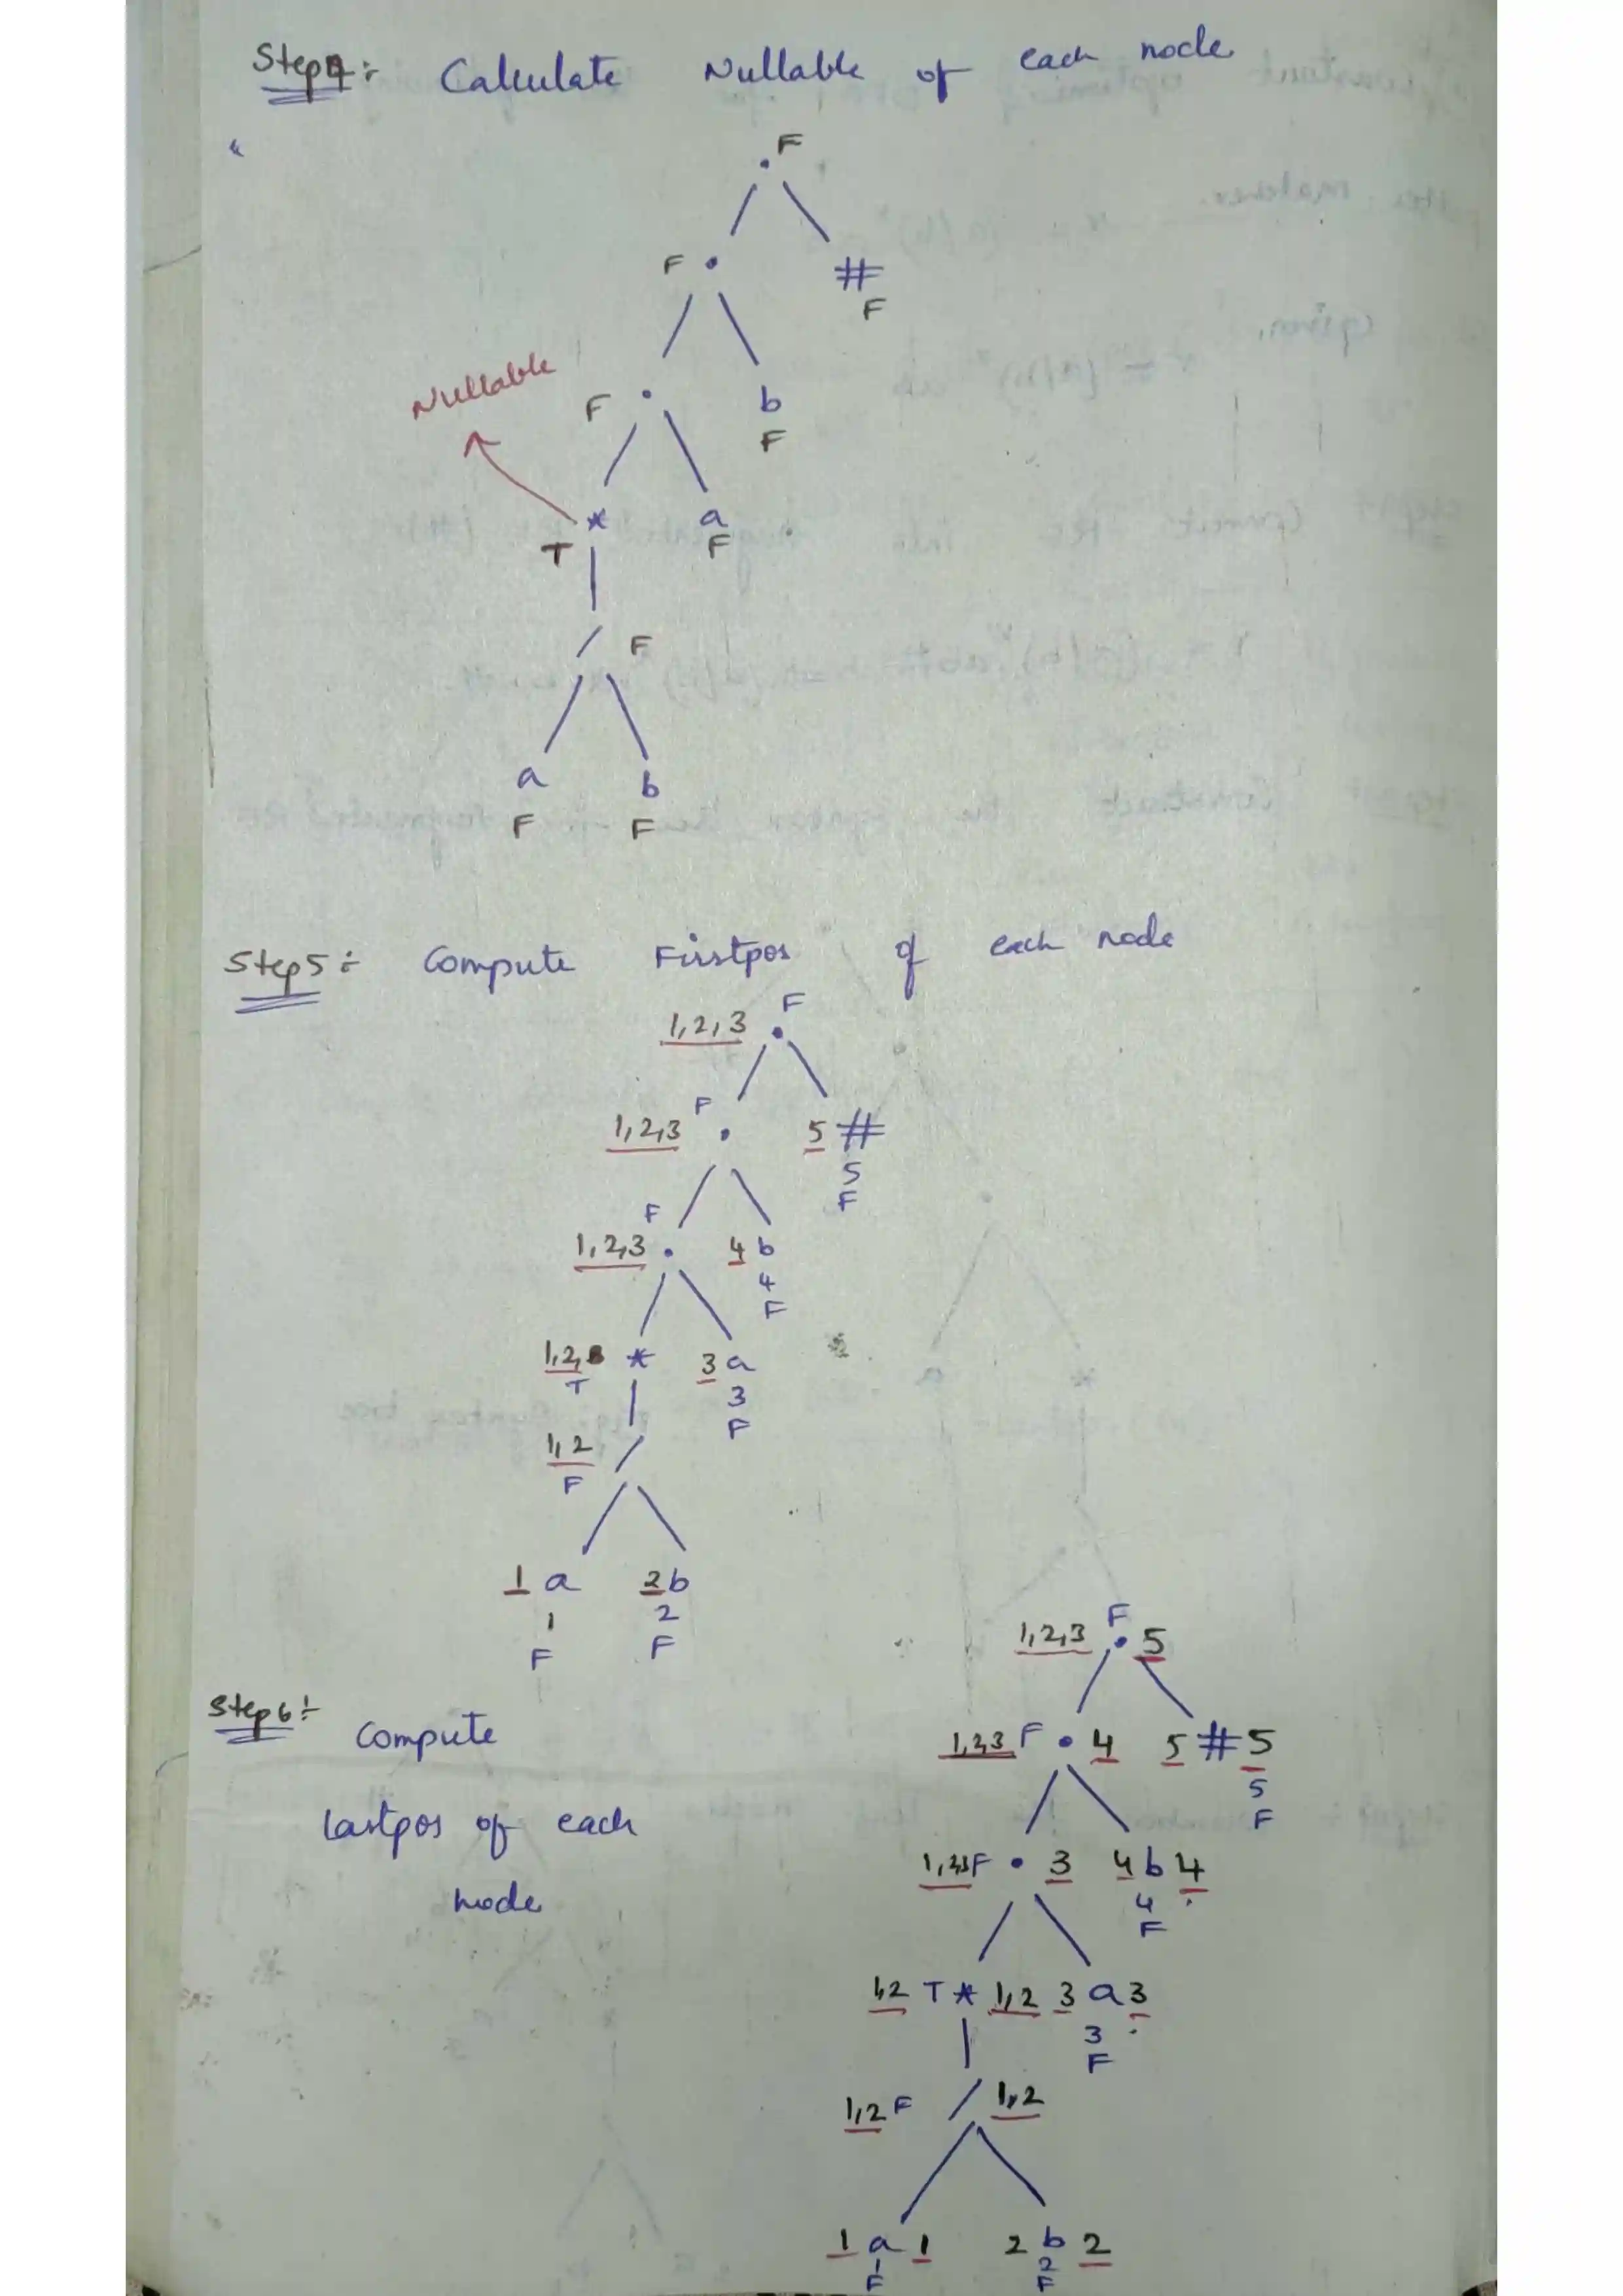 Step4:- Calculate Nullable of each node
F
.
F . #
F
Nullable
F . b
F
* a
T F
/ F
a b
F F
Step5:- Compute Firstpos of each node
F
1,2,3 .
F
1,2,3 . 5 #
5
F
F
1,2,3 . 4 b
4
F
1,2 * 3 a
T 3
F
1,2 /
F
1 a 2 b
1 2
F F
F
1,2,3 . 5
Step6:- Compute
1,2,3 F . 4 5 # 5
5
F
Lastpos of each
1,2,3 F . 3 4 b 4
4
F
node
1,2 T * 1,2 3 a 3
3
F
1,2 F / 1,2
1 a 1 2 b 2
1 2
F F